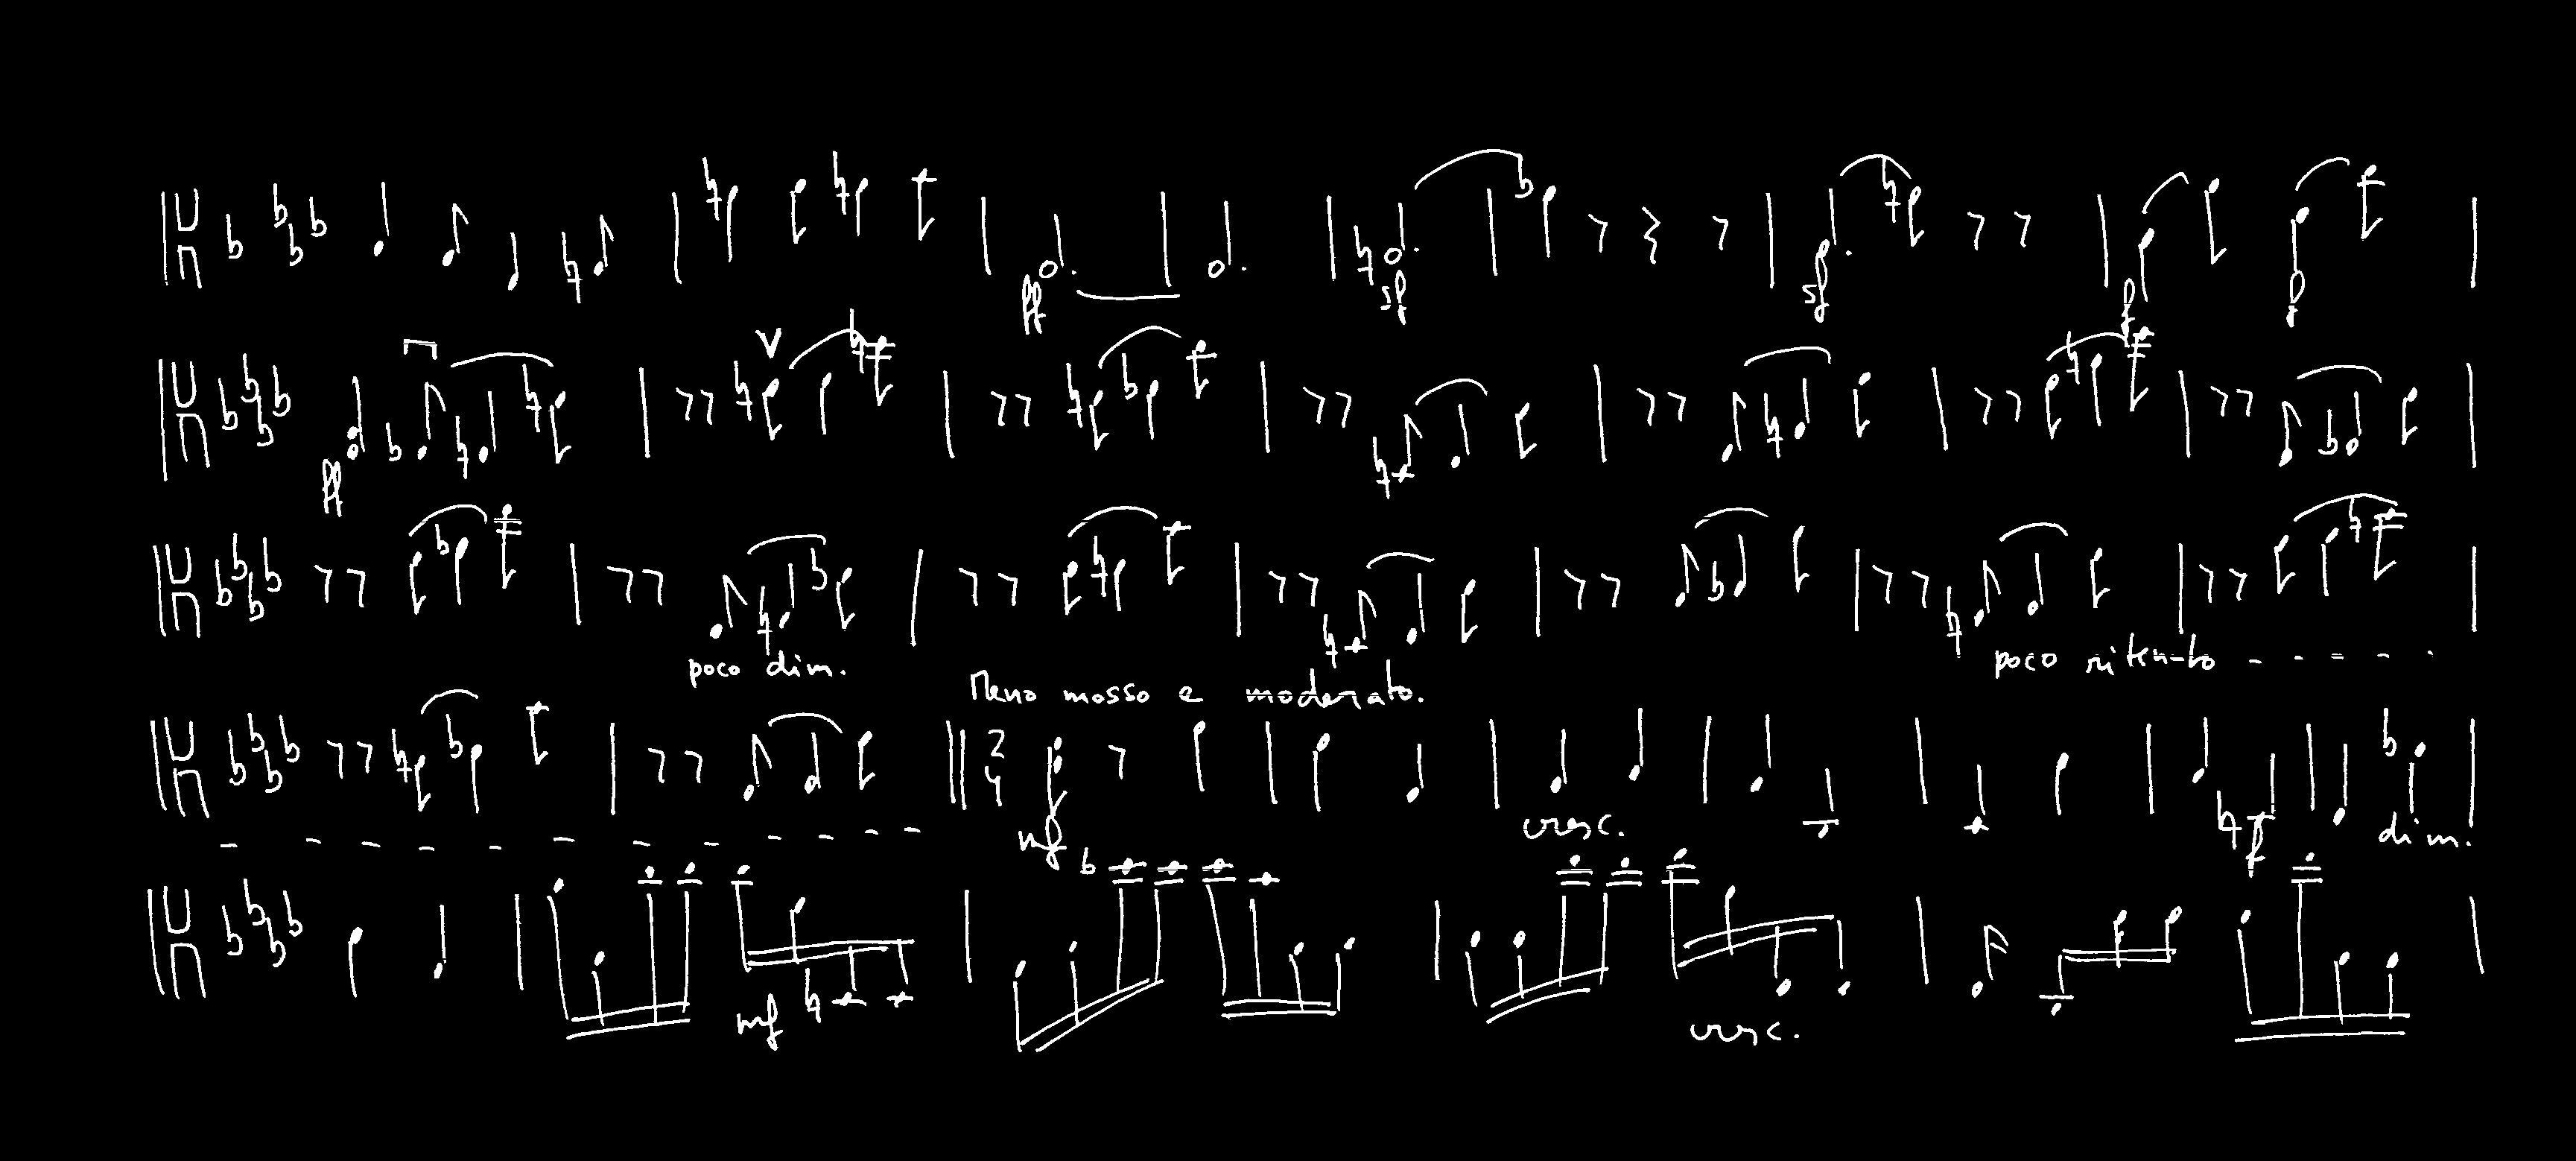 ff sf sf f f
ff
poco dim. poco ritenuto
Meno mosso e moderato.
2 4 mf cresc. f dim.
mf cresc.